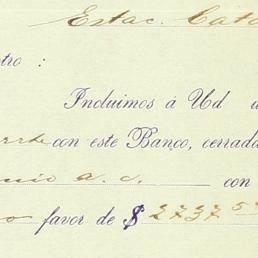 Estac. Cato
tro :
Incluimos á Ud
con este Banco, cerrada
a. c. con
favor de $ 2737.5